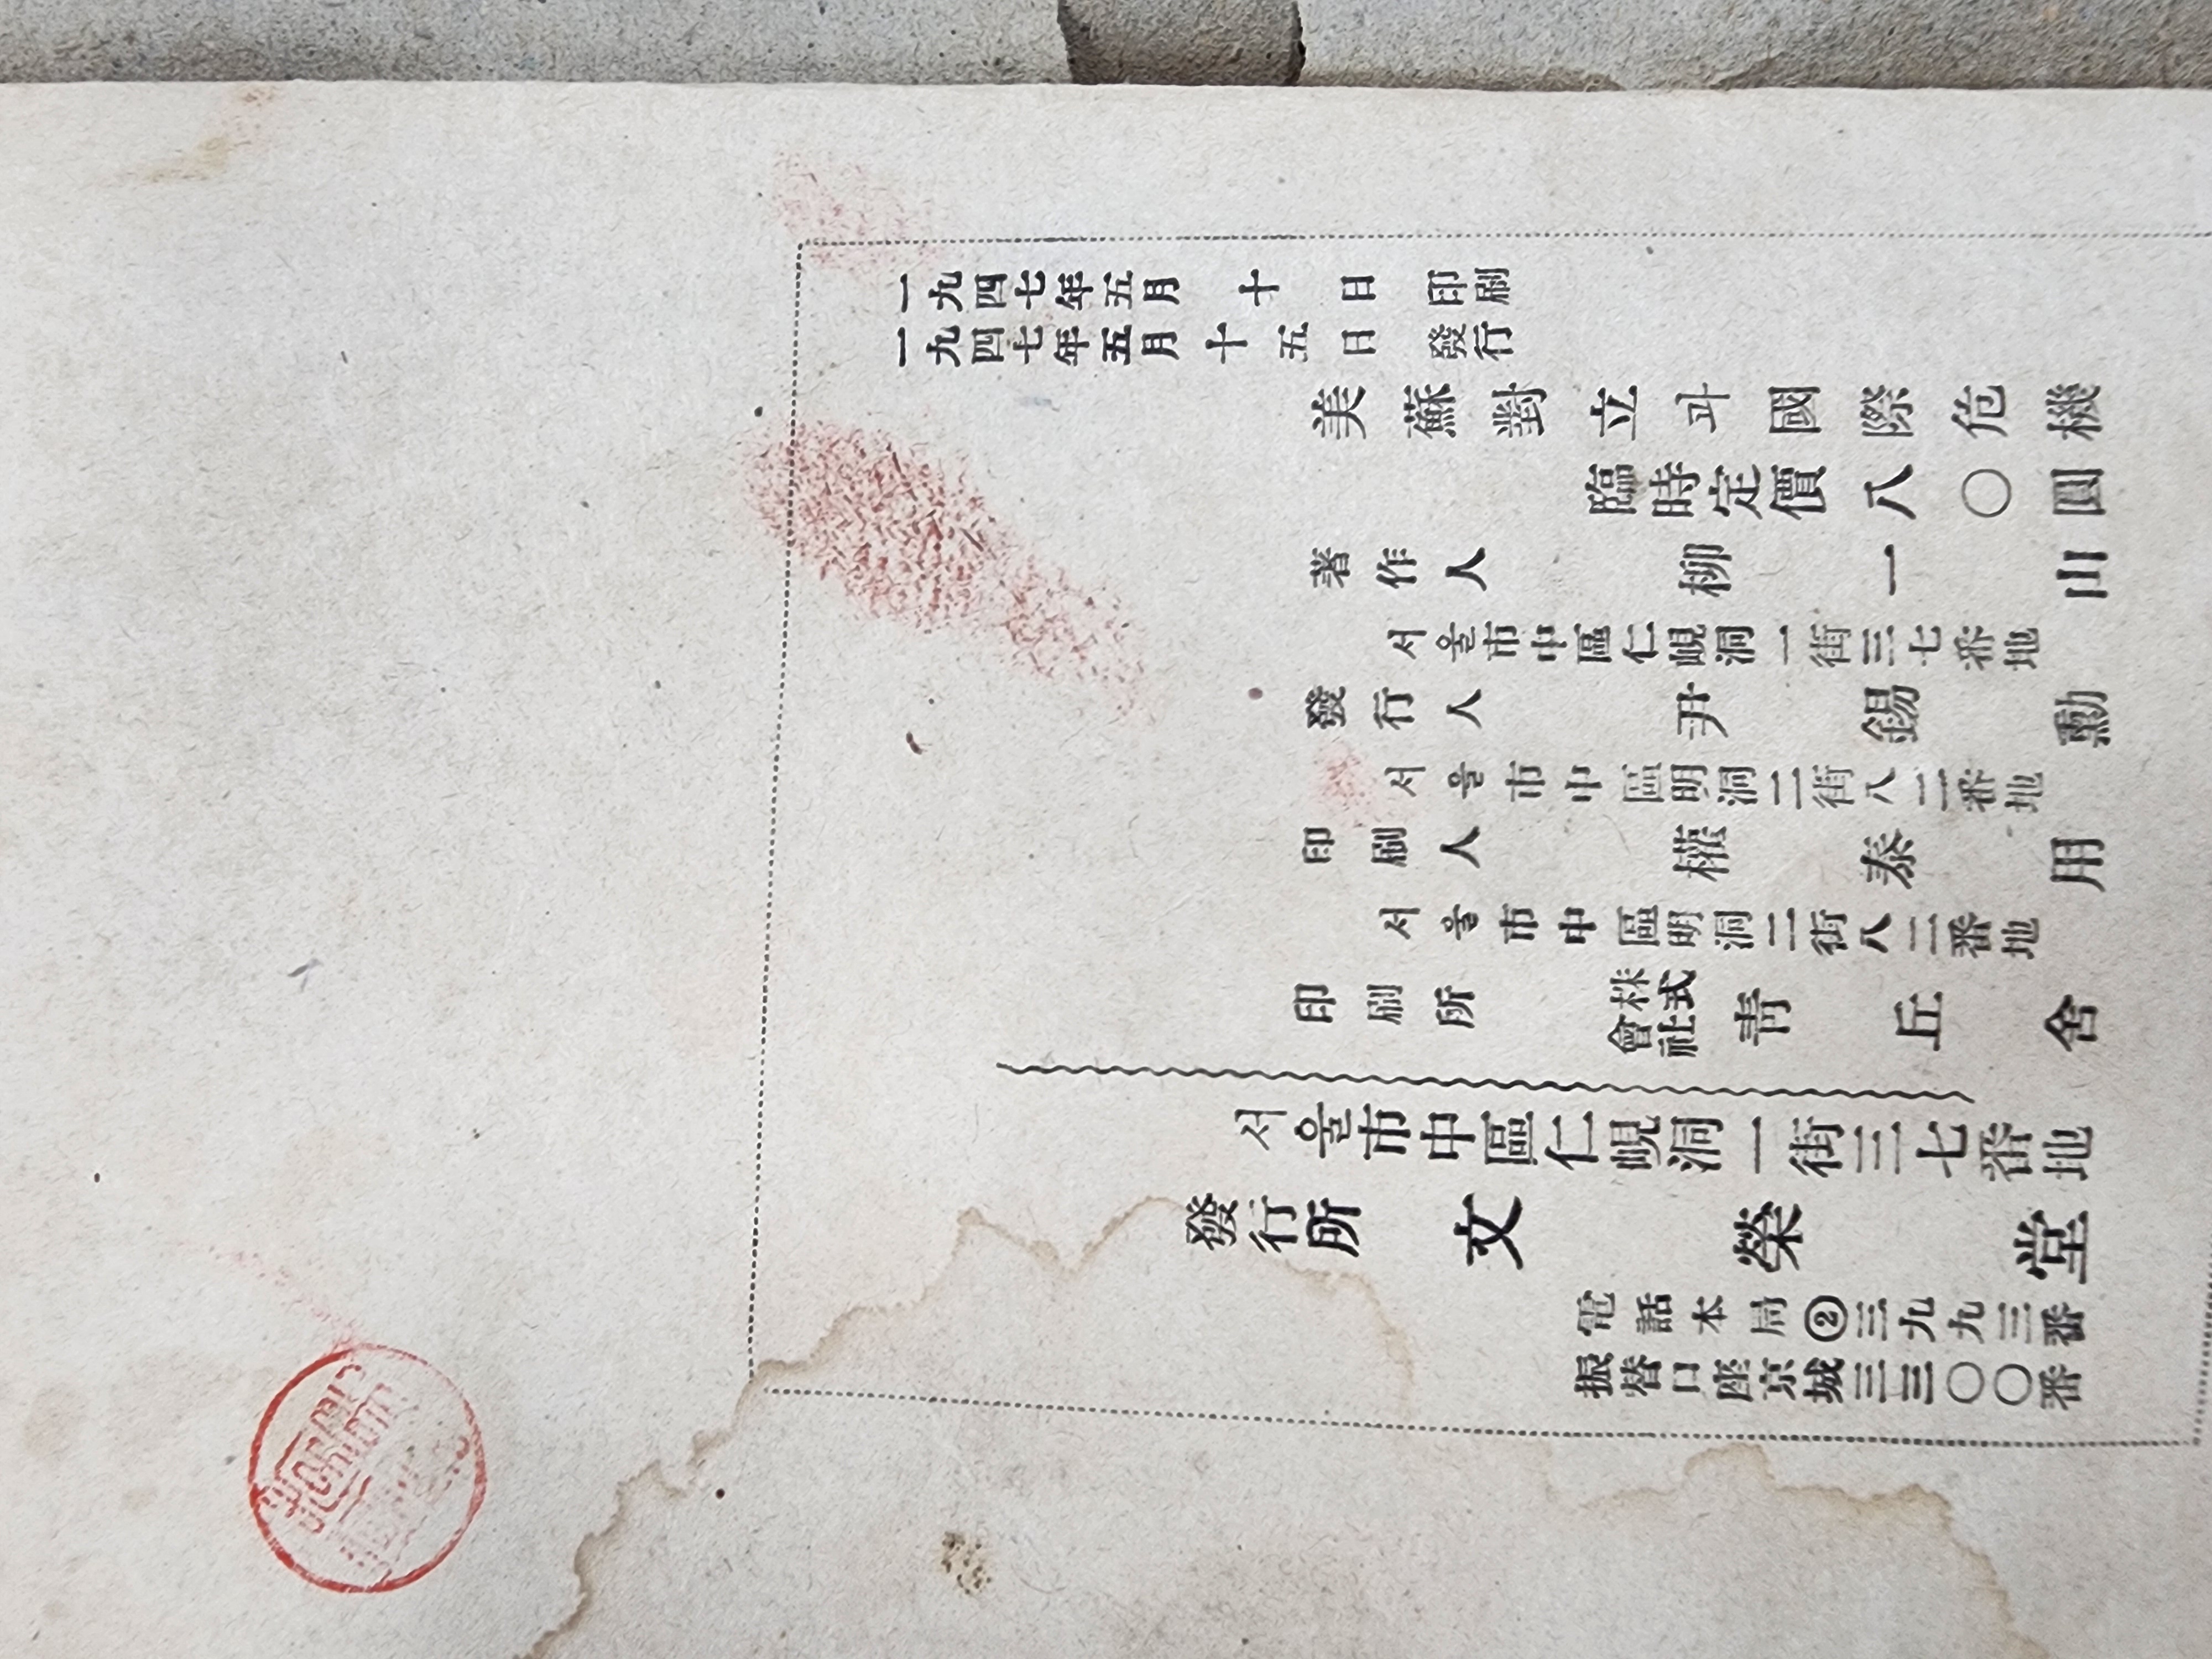 一九四七年五月十日 印刷
一九四七年五月十五日 發行
美蘇對立과國際危機
臨時定價八〇圓
著作人 柳一山
서울市中區仁峴洞一街三七番地
發行人 尹錫勳
서울市中區明洞二街八二番地
印刷人 權泰用
서울市中區明洞二街八二番地
印刷所 株式會社 靑丘舍
서울市中區仁峴洞一街三七番地
發行所 文榮堂
電話本局②三九九三番
振替口座京城三三〇〇番